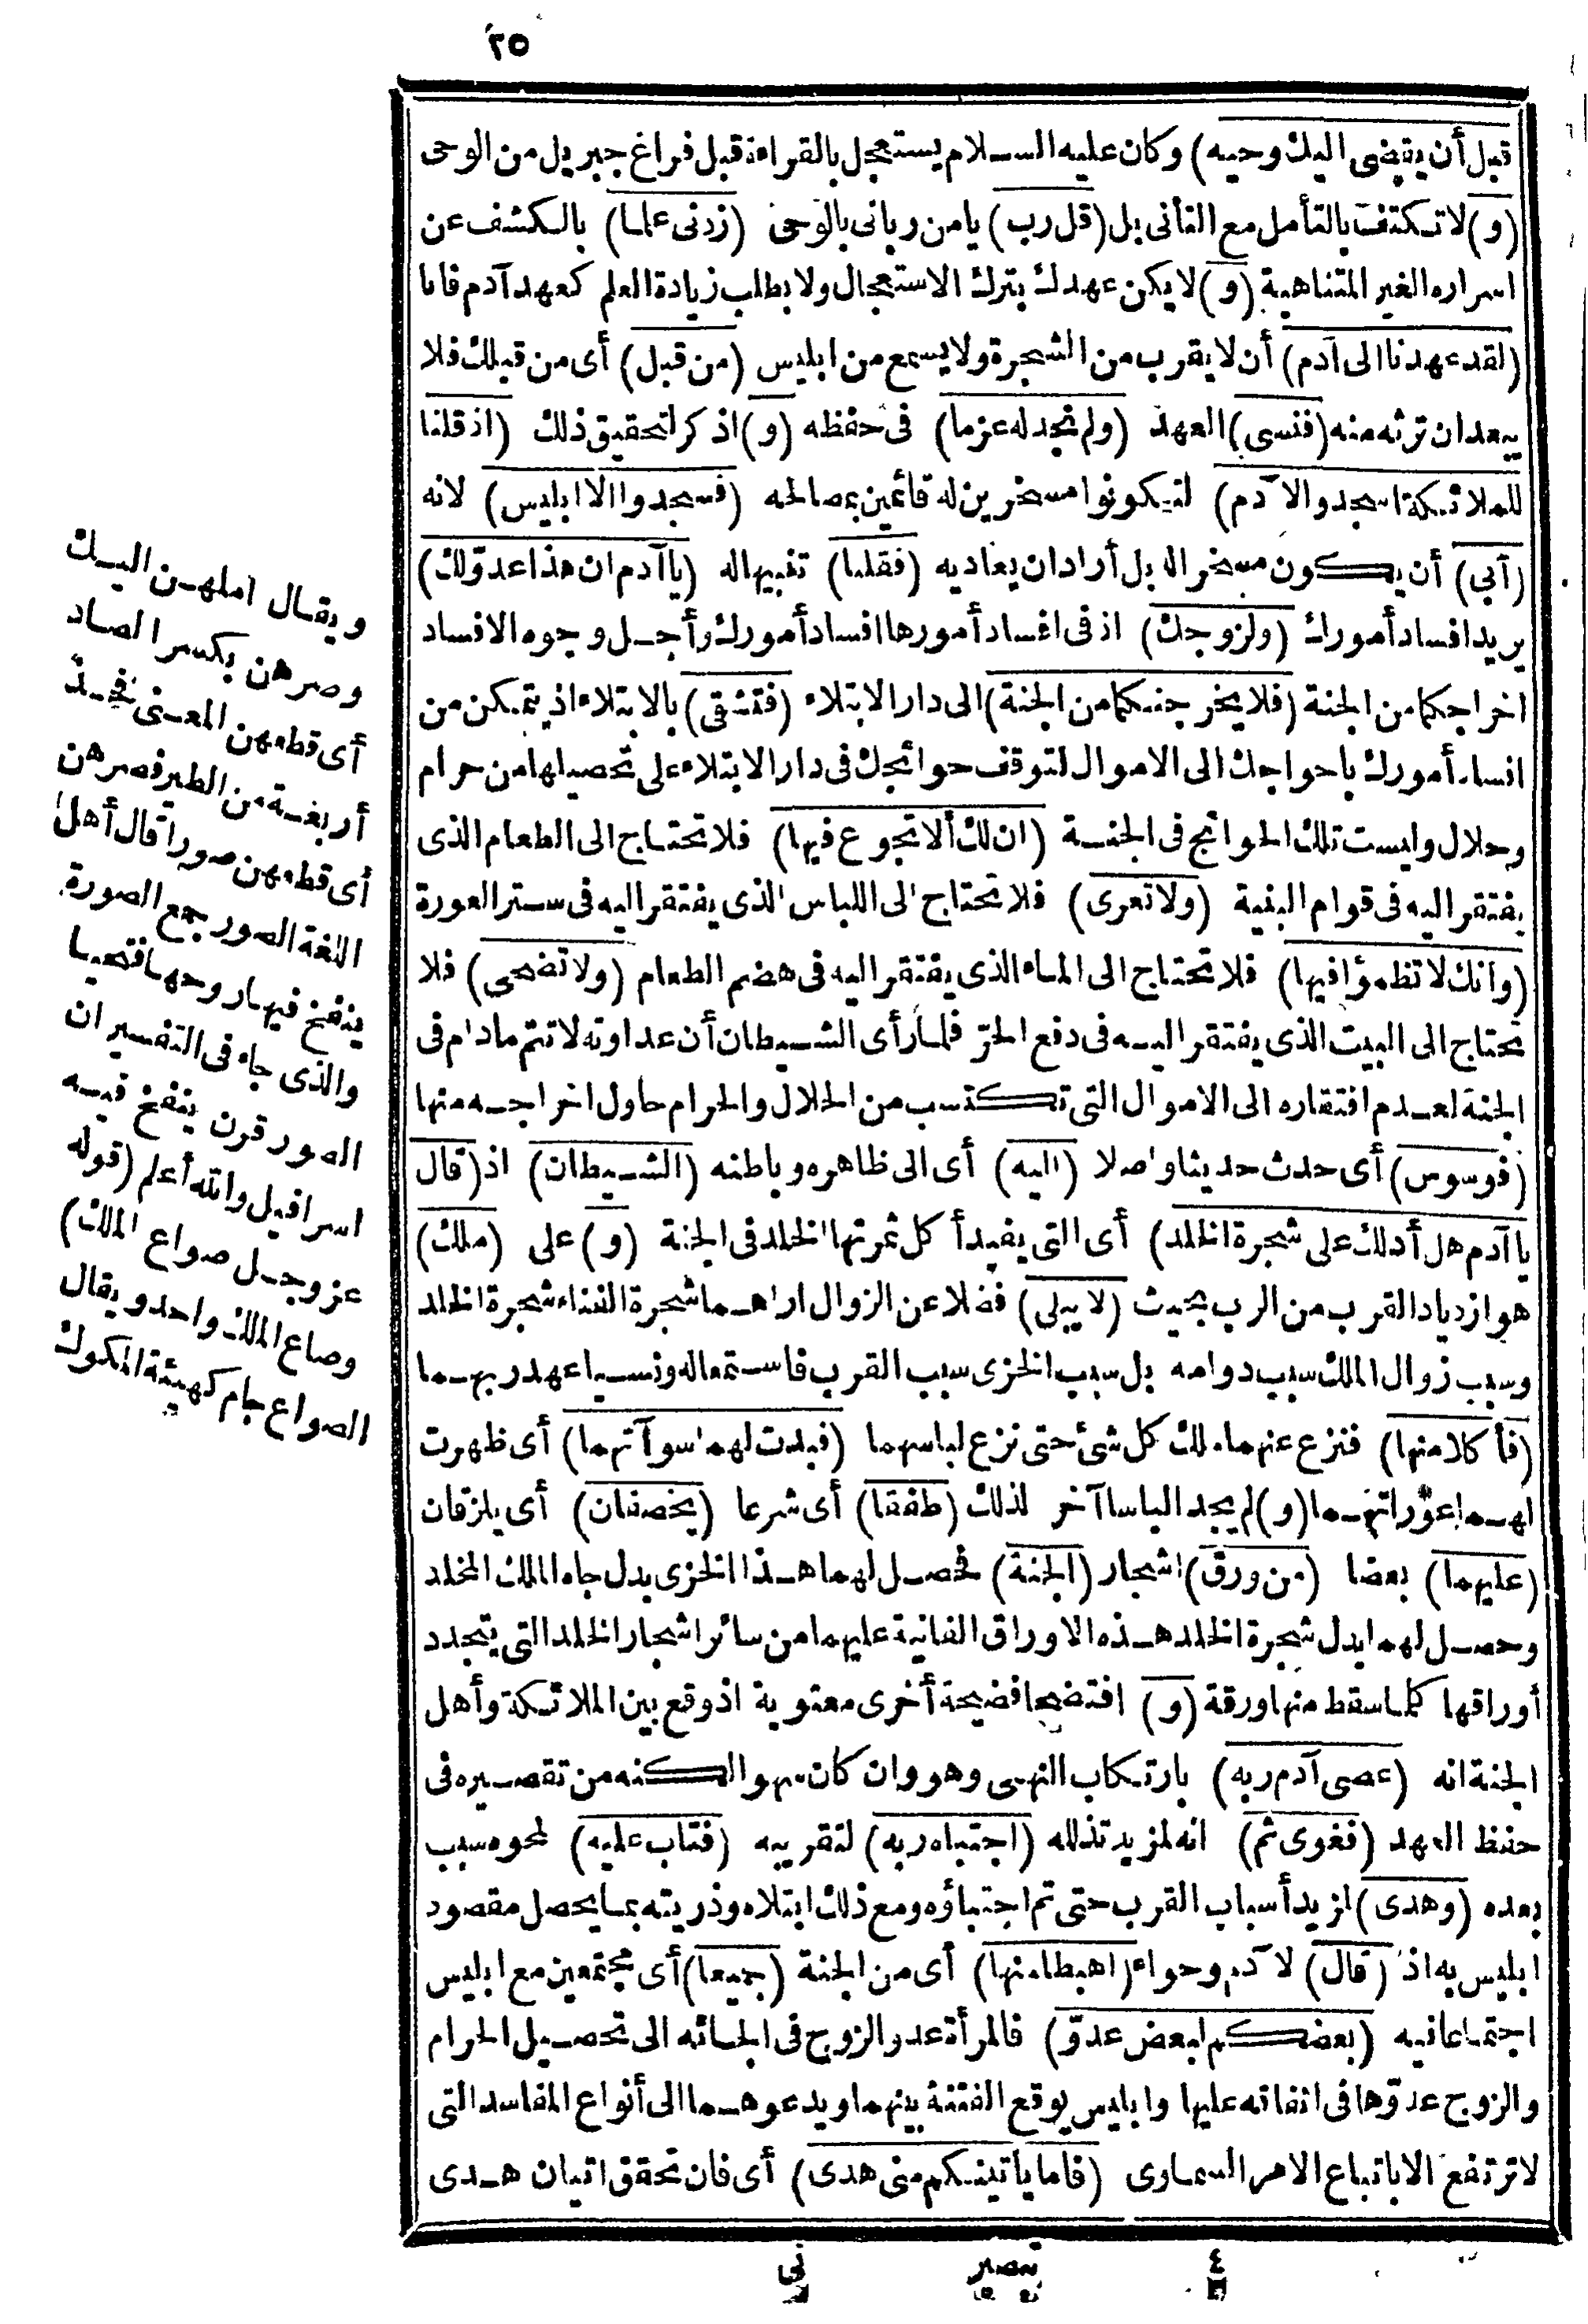 ٢٥
قبل أن يقضى اليك وحيه) وكان عليه السلام يستعجل بالقراءة قبل فراغ جبريل من الوحى
(و) لا تكتف بالتأمل مع التأنى بل (قل رب) يا من ربانى بالوحى (زدنى علما) بالكشف عن
اسراره الغير المتناهية (و) لا يكن عهدك بترك الاستعجال ولا بطلب زيادة العلم كعهد آدم فانا
(لقد عهدنا الى آدم) أن لا يقرب من الشجرة ولا يسمع من ابليس (من قبل) أى من قبلك فلا
يبعد ان ترثه منه (فنسى) العهد (ولم نجد له عزما) فى حفظه (و) اذكر لتحقيق ذلك (اذ قلنا
للملائكة اسجدوا لآدم) لتكونوا مسخرين له قائمين بمصالحه (فسجدوا الا ابليس) لانه
(أبى) أن يكون مسخرا له بل أراد ان يعاديه (فقلنا) تنبيها له (يا آدم ان هذا عدوّ لك)
يريد افساد أمورك (ولزوجك) اذ فى افساد أمورها افساد أمورك وأجل وجوه الافساد
اخراجكما من الجنة (فلا يخرجنكما من الجنة) الى دار الابتلاء (فتشقى) بالابتلاء اذ يتمكن من
افساد أمورك باحواجك الى الاموال لتوقف حوائجك فى دار الابتلاء على تحصيلها من حرام
وحلال وليست تلك الحوائج فى الجنة (ان لك ألا تجوع فيها) فلا تحتاج الى الطعام الذى
يفتقر اليه فى قوام البنية (ولا تعرى) فلا تحتاج الى اللباس الذى يفتقر اليه فى ستر العورة
(وأنك لا تظمؤا فيها) فلا تحتاج الى الماء الذى يفتقر اليه فى هضم الطعام (ولا تضحى) فلا
تحتاج الى البيت الذى يفتقر اليه فى دفع الحرّ فلما رأى الشيطان أن عداوته لا تتم مادام فى
الجنة لعدم افتقاره الى الاموال التى تكتسب من الحلال والحرام حاول اخراجه منها
(فوسوس) أى حدث حديثا واصلا (اليه) أى الى ظاهره وباطنه (الشيطان) اذ (قال
يا آدم هل أدلك على شجرة الخلد) أى التى يفيد أكل ثمرتها الخلد فى الجنة (و) على (ملك)
هو ازدياد القرب من الرب بحيث (لا يبلى) فضلا عن الزوال اراهما شجرة الفناء شجرة الخلد
وسبب زوال الملك سبب دوامه بل سبب الخزى سبب القرب فاستمعا له ونسيا عهد ربهما
(فأكلا منها) فنزع عنهما ملك كل شئ حتى نزع لباسهما (فبدت لهما سوآتهما) أى ظهرت
لهما عوراتهما (و) لم يجدا لباسا آخر لذلك (طفقا) أى شرعا (يخصفان) أى يلزقان
(عليهما) بعضا (من ورق) اشجار (الجنة) فحصل لهما هذا الخزى بدل جاه الملك المخلد
وحصل لهما بدل شجرة الخلد هذه الاوراق الفانية عليهما من سائر اشجار الخلد التى يتجدد
أوراقها كلما سقط منها ورقة (و) افتضحا فضيحة أخرى معنوية اذ وقع بين الملائكة وأهل
الجنة انه (عصى آدم ربه) بارتكاب النهى وهو وان كان سهوا لكنه من تقصيره فى
حفظ العهد (فغوى ثم) انه لمزيد تذلله (اجتباه ربه) لتقريبه (فتاب عليه) لمحوه سبب
بعده (وهدى) لمزيد أسباب القرب حتى تم اجتباؤه ومع ذلك ابتلاه وذريته بما يحصل مقصود
ابليس به اذ (قال) لآدم وحواء (اهبطا منها) أى من الجنة (جميعا) أى مجتمعين مع ابليس
اجتماعا فيه (بعضكم لبعض عدوّ) فالمرأة عدو الزوج فى الجائه الى تحصيل الحرام
والزوج عدوّها فى انفاقه عليها وابليس يوقع الفتنة بينهما ويدعوهما الى أنواع المفاسد التى
لا ترتفع الا باتباع الامر السماوى (فاما يأتينكم منى هدى) أى فان تحقق اتيان هدى
ويقال أملهن اليك
وصرهن بكسر الصاد
أى قطعهن المعنى فخذ
أربعة من الطير فصرهن
أى قطعهن صورا قال أهل
اللغة الصور جمع الصورة
ينفخ فيها روحها فتحيا
والذى جاء فى التفسير ان
الصور قرن ينفخ فيه
اسرافيل والله أعلم (قوله
عز وجل صواع الملك)
وصاع الملك واحد ويقال
الصواع جام كهيئة المكوك
٤ تبصير نى